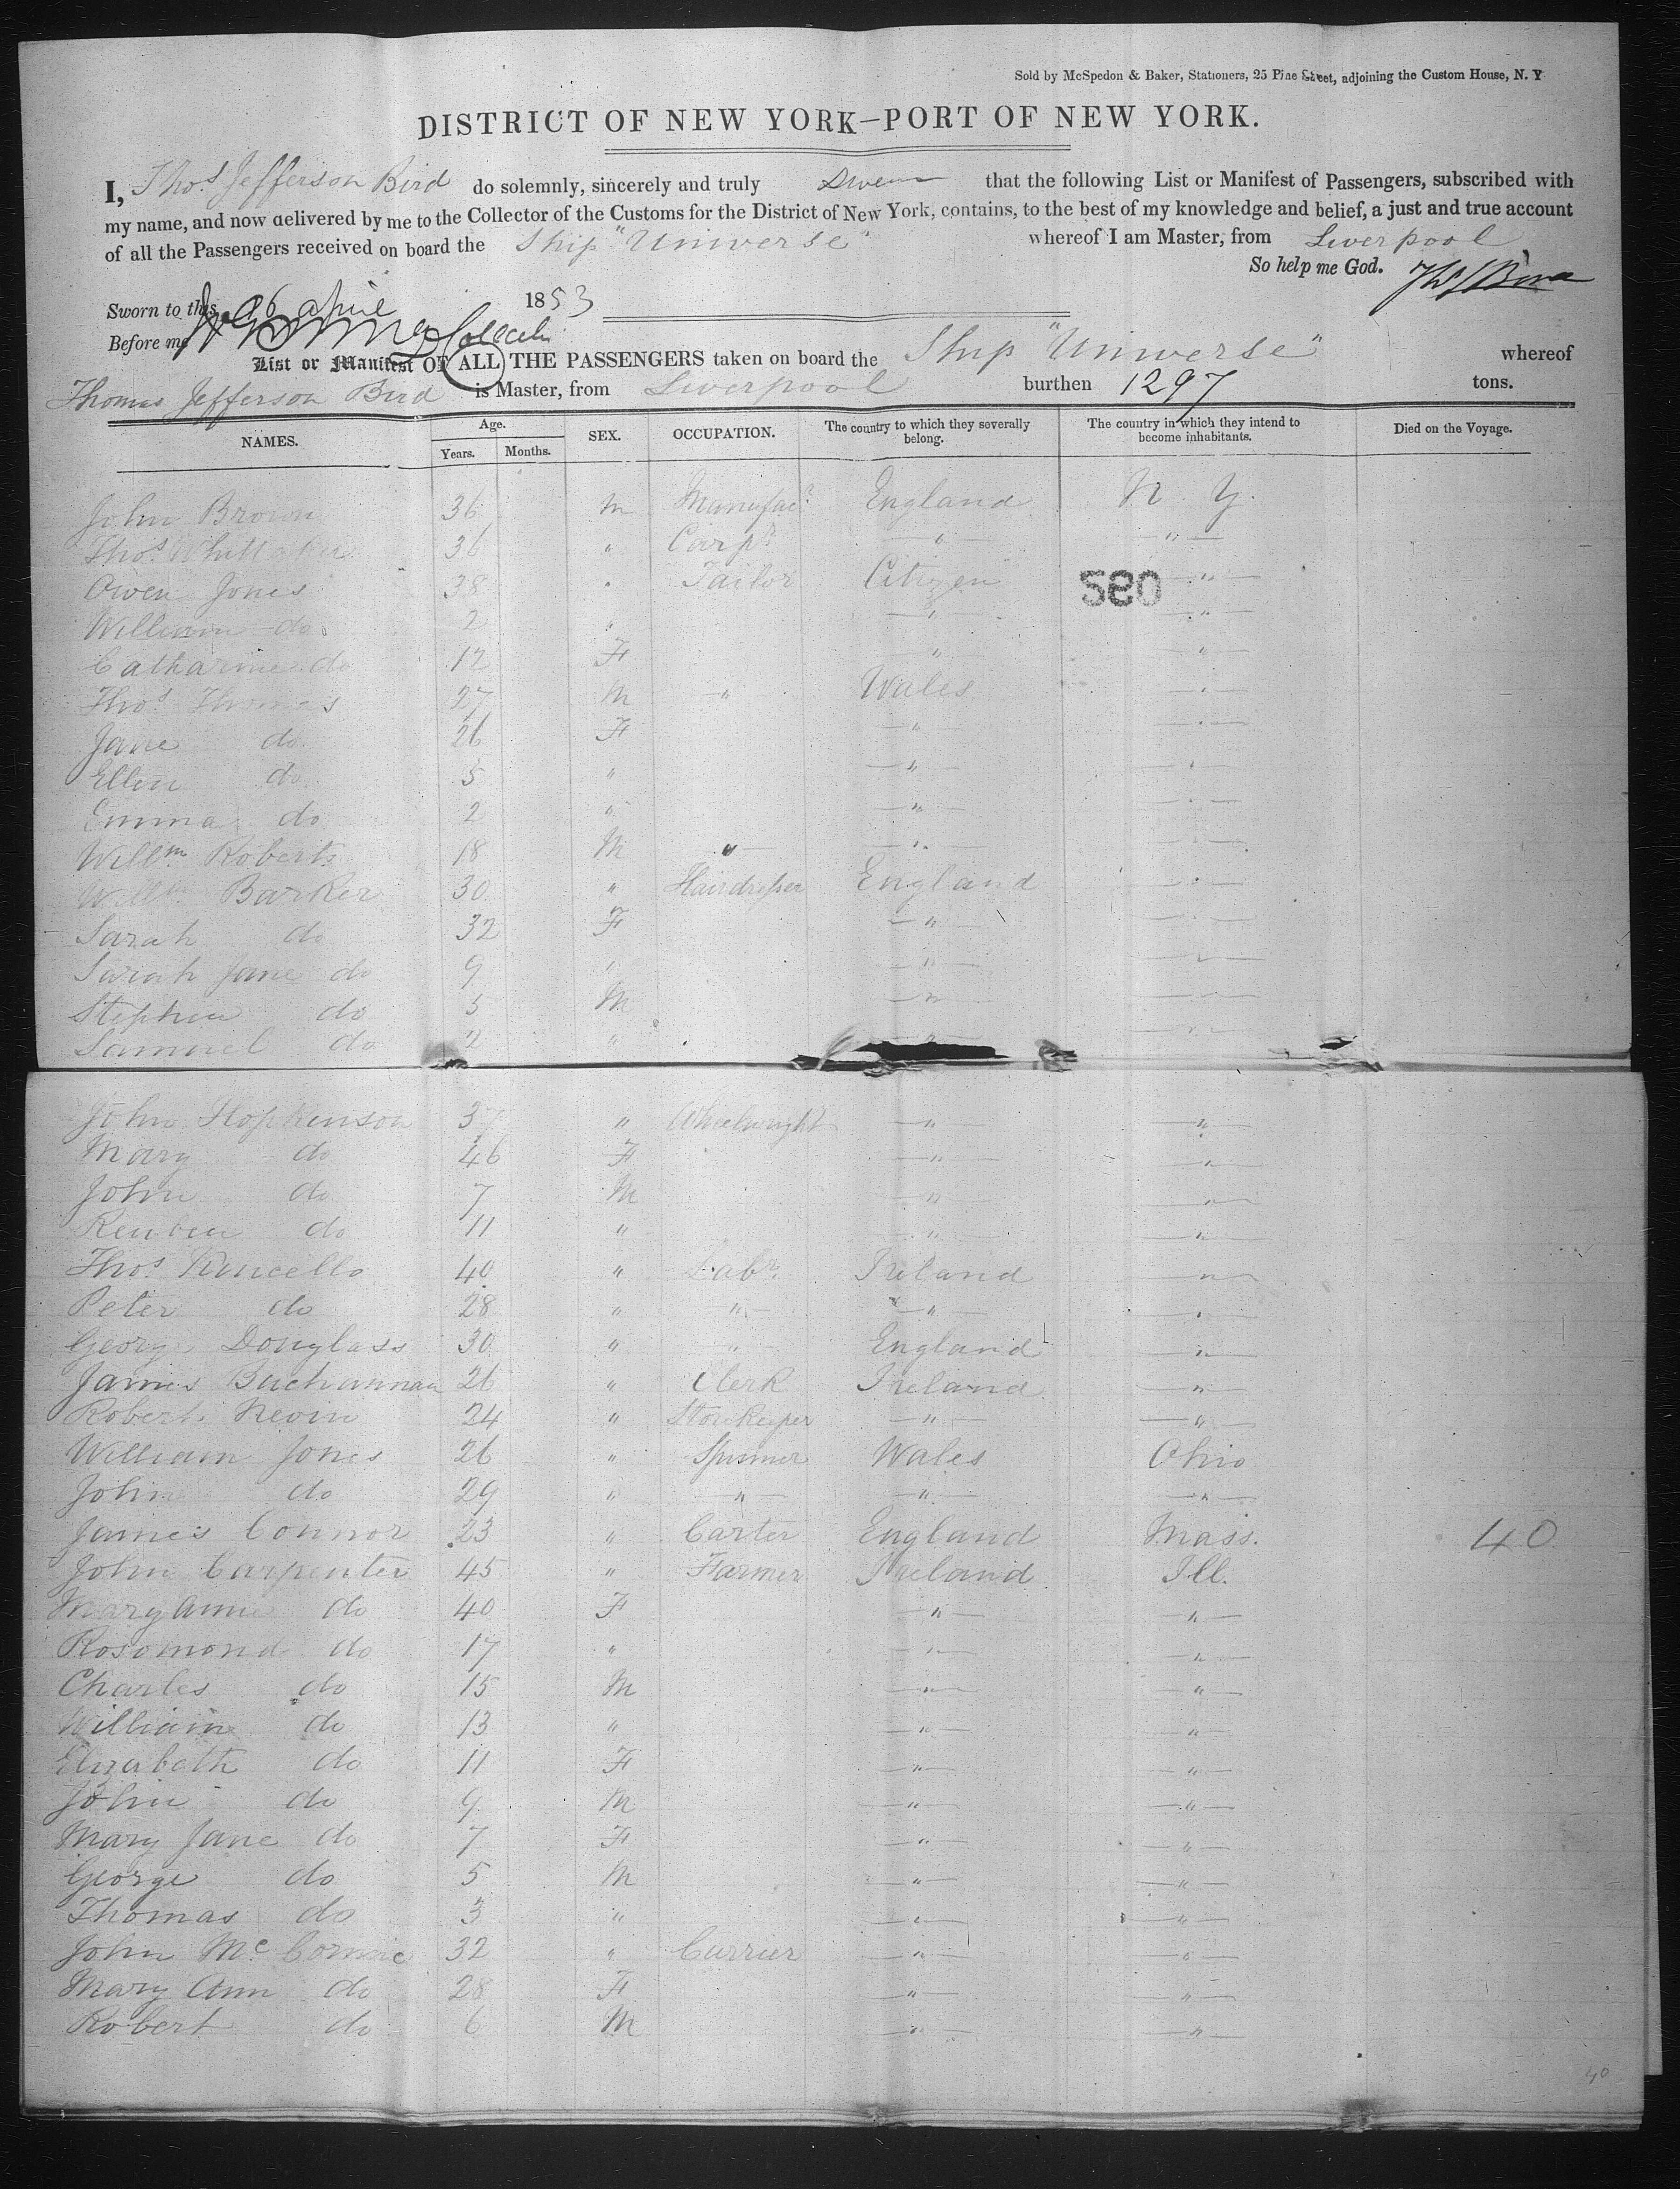 Sold by McSpedon & Baker, Stationers, 25 Pine Street, adjoining the Custom House, N. Y
DISTRICT OF NEW YORK—PORT OF NEW YORK.
I, Thos. Jefferson Bird do solemnly, sincerely and truly swear that the following List or Manifest of Passengers, subscribed with
my name, and now delivered by me to the Collector of the Customs for the District of New York, contains, to the best of my knowledge and belief, a just and true account
of all the Passengers received on board the Ship "Universe" whereof I am Master, from Liverpool
So help me God. Thos J Bird
Sworn to this 26 April 1853
Before me
List or Manifest OF ALL THE PASSENGERS taken on board the Ship "Universe" whereof
Thomas Jefferson Bird is Master, from Liverpool burthen 1297 tons.
NAMES. Age. Years. Months. SEX. OCCUPATION. The country to which they severally belong. The country in which they intend to become inhabitants. Died on the Voyage.
John Brown 36 M Manufacr England N. Y.
Thos. Whittaker 36 " Carpr " "
Owen Jones 38 " Tailor Citizen "
580
William do 2 " " "
Catharine do 12 F " "
Thos. Thomas 27 M " Wales "
Jane do 26 F " "
Ellen do 5 " " "
Emma do 2 " " "
Willm Roberts 18 M " " "
Willm Barker 30 " Hairdresser England "
Sarah do 32 F " "
Sarah Jane do 9 " " "
Stephen do 5 M " "
Samuel do 2 " " "
John Hopkenson 37 " Wheelwright " "
Mary do 46 F " "
John do 7 M " "
Reuben do 11 " " "
Thos. 40 " Labr. Ireland "
Peter do 28 " " " "
George Douglass 30 " " England "
James Buchannan 26 " Clerk Ireland "
Robert Nevin 24 " Storekeeper " "
William Jones 26 " Spinner Wales Ohio
John do 29 " " " "
James Connor 23 " Carter England Mass. 40
John Carpenter 45 " Farmer Ireland Ill.
Mary Anne do 40 F " "
Rosomond do 17 " " "
Charles do 15 M " "
William do 13 " " "
Elizabeth do 11 F " "
John do 9 M " "
Mary Jane do 7 F " "
George do 5 M " "
Thomas do 3 " " "
John 32 " Currier " "
Mary Ann do 28 F " "
Robert do 6 M " "
40